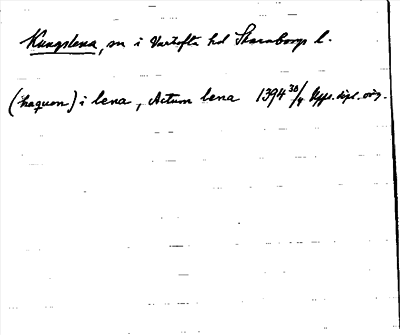 Kungslena, sn i Vartofta hd Skaraborgs l.
(haquon) i lena, Actum lena 1394 30/4 Upps. dipl. orig.